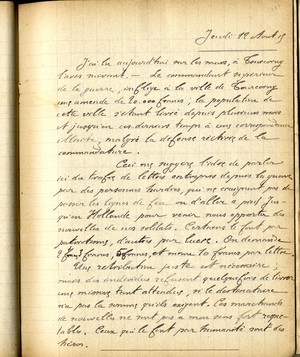 Jeudi 12 Aout 15
J'ai lu aujourd'hui sur les murs, à Tourcoing
l'avis suivant. — Le commandant supérieur
de la guerre, inflige à la ville de Tourcoing
une amende de 20.000 francs, la population de
cette ville s'étant livré depuis plusieurs mois
et jusqu'en ces derniers temps à une correspondance
illicite, malgré la défense réitérée de la
commandature.
Ceci me suggère l'idée de parler
ici du trafic de lettres entrepris depuis la guerre
par des personnes hardies, qui ne craignent pas de
passer les lignes de feu ou d'aller à pas jus-
qu'en Hollande pour venir nous apporter des
nouvelles de nos soldats. Certains le font par
patriotisme, d'autres par lucre. On demande
2 francs, 5 francs, et même 10 francs par lettre.
Une rétribution juste est nécessaire;
mais des individus refusent quelquefois de livrer
une missive tant attendue, si le destinataire
n'a pas la somme qu'ils exigent. Ces marchands
de nouvelles ne sont pas à mon sens fort respec-
tables. Ceux qui le font par humanité sont des
héros.